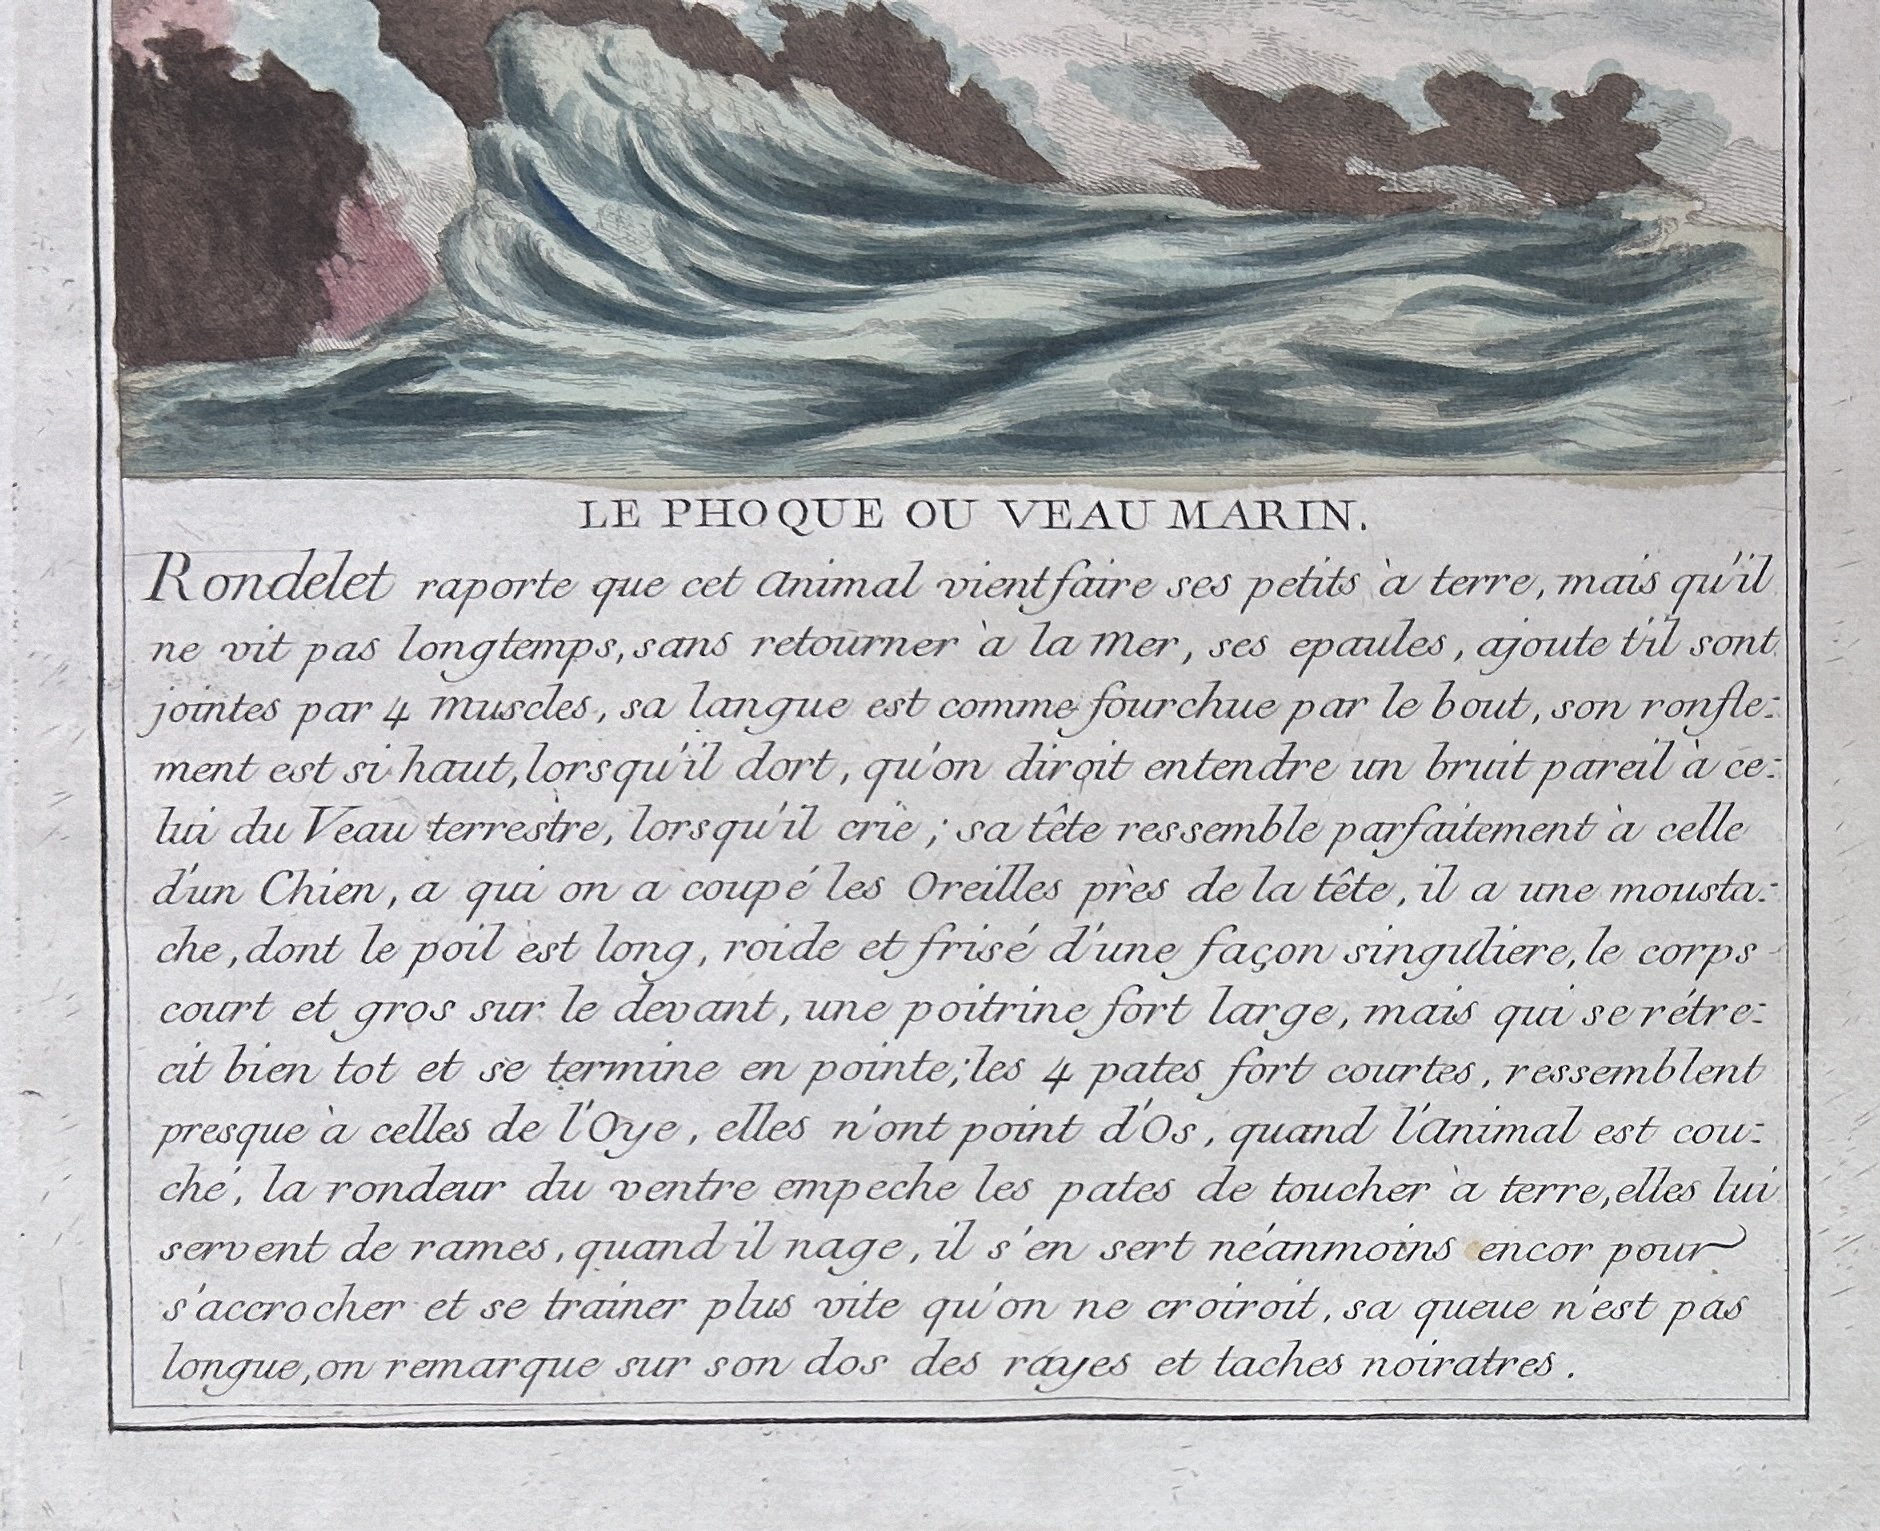 LE PHOQUE OU VEAU MARIN.
Rondelet raporte que cet animal vient faire ses petits à terre, mais qu'il
ne vit pas longtemps, sans retourner à la mer, ses epaules, ajoute t'il sont
jointes par 4 muscles, sa langue est comme fourchue par le bout, son ronfle:
ment est si haut, lorsqu'il dort, qu'on diroit entendre un bruit pareil à ce:
lui du Veau terrestre, lorsqu'il crie; sa tête ressemble parfaitement à celle
d'un Chien, a qui on a coupé les Oreilles près de la tête, il a une mousta:
che, dont le poil est long, roide et frisé d'une façon singuliere, le corps
court et gros sur le devant, une poitrine fort large, mais qui se rétre:
cit bien tot et se termine en pointe; les 4 pates fort courtes, ressemblent
presque à celles de l'Oye, elles n'ont point d'Os, quand l'animal est cou:
ché, la rondeur du ventre empeche les pates de toucher à terre, elles lui
servent de rames, quand il nage, il s'en sert néanmoins encor pour
s'accrocher et se trainer plus vite qu'on ne croiroit, sa queue n'est pas
longue, on remarque sur son dos des rayes et taches noiratres.